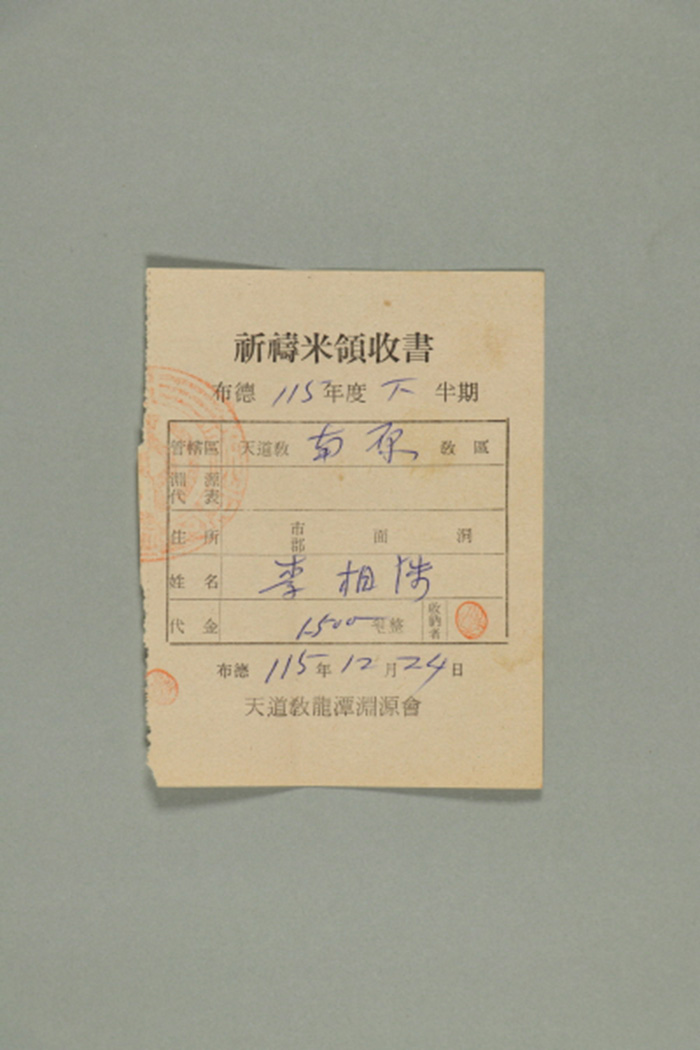 祈禱米領收書
布德 115年度 下 半期
管轄區 天道敎 南原 敎區
淵源代表
住所 市郡 面 洞
姓名 李相
代金 1500 整 收納者
布德 115年 12月 24日
天道敎龍潭淵源會